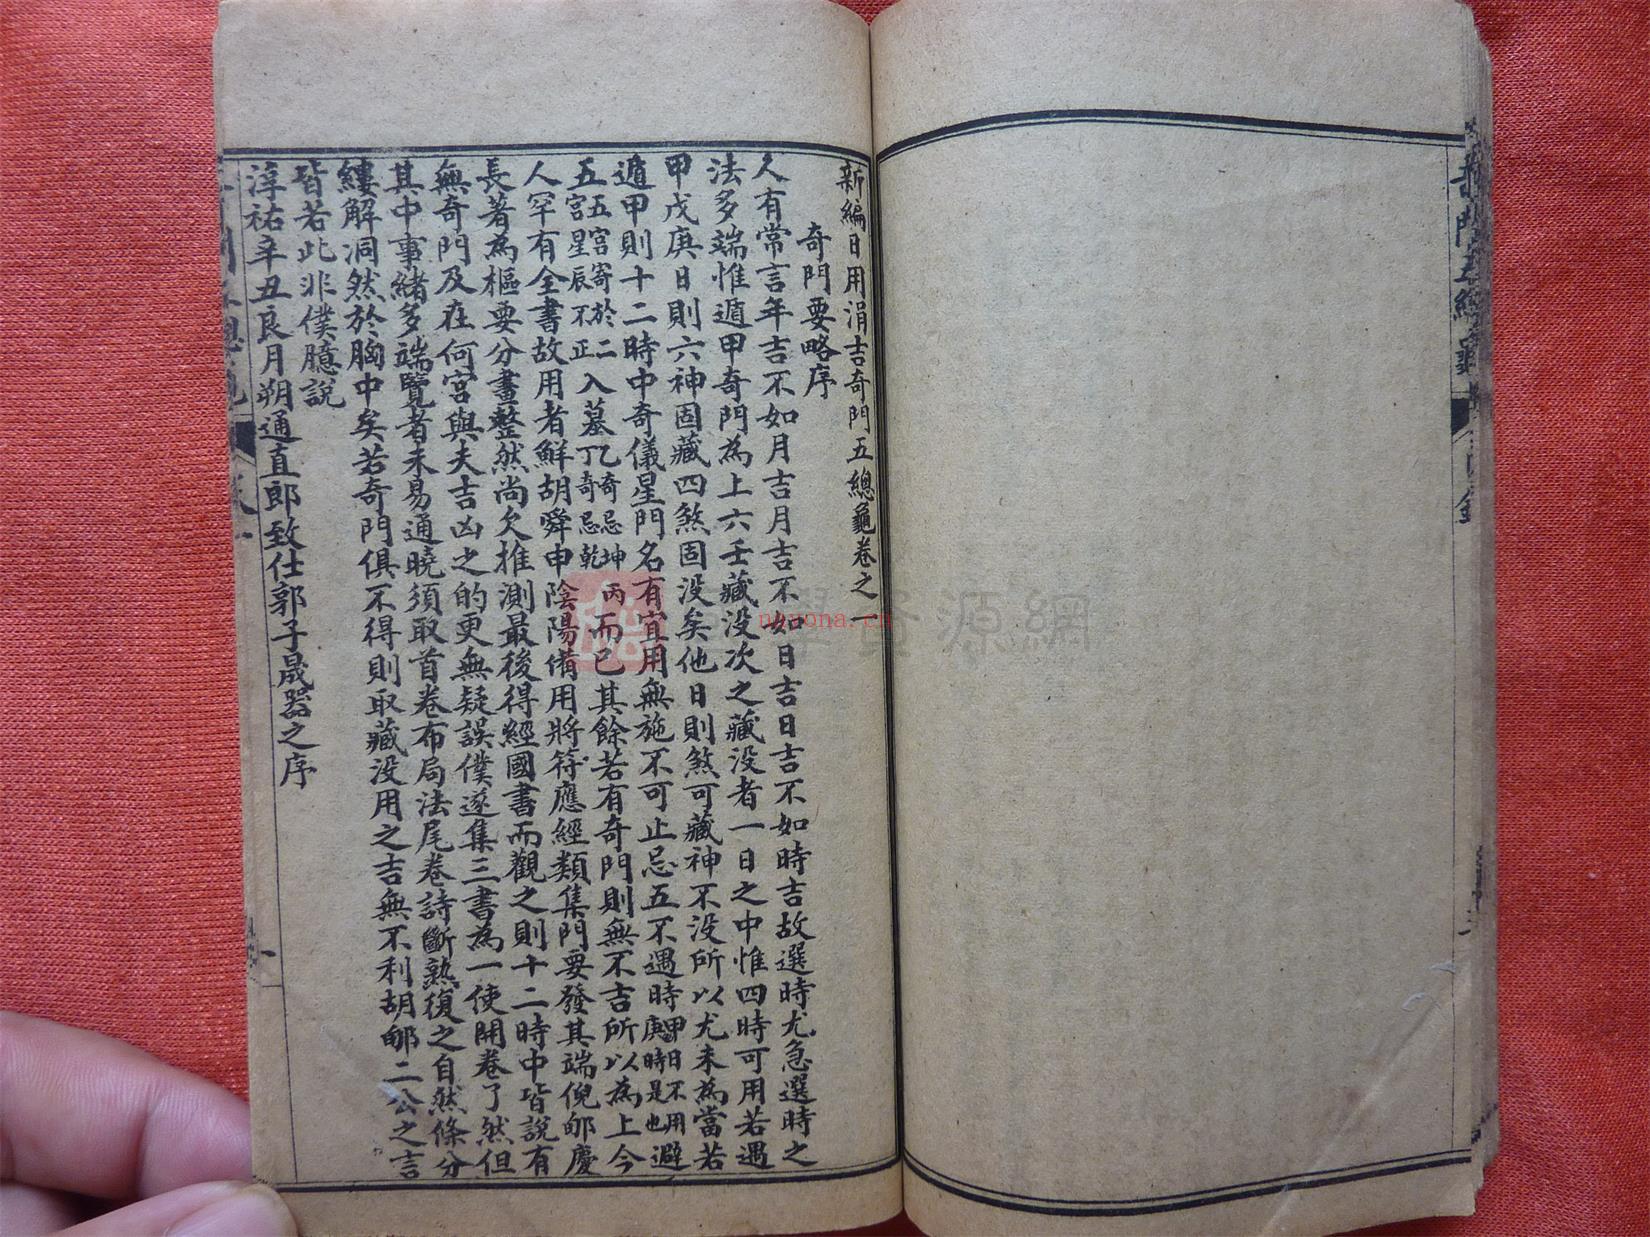 新編日用涓吉奇門五總龜卷之一
奇門要略序
人有常言年吉不如月吉月吉不如日吉日吉不如時吉故選時尤急選時之
法多端惟遁甲奇門為上六壬藏没次之藏没者一日之中惟四時可用若遇
甲戊庚日則六神固藏四煞固没矣他日則煞可藏神不没所以尤未為當若
遁甲則十二時中奇儀星門名有宜用無施不可止忌五不遇時甲日不用庚時是也避
五五宮寄於二宮星辰不正入墓乙奇忌坤丙丁奇忌乾而已其餘若有奇門則無不吉所以為上今
人罕有全書故用者鮮胡舜申陰陽備用將符應經類集門要發其端倪郇慶
長著為樞要分畫整然尚欠推測最後得經國書而觀之則十二時中皆説有
無奇門及在何宮與夫吉凶之的更無疑誤僕遂集三書為一使開卷了然但
其中事緒多端覽者未易通曉須取首卷布局法尾卷詩斷熟復之自然條分
縷解洞然於胸中矣若奇門俱不得則取藏没用之吉無不利胡郇二公之言
皆若此非僕臆説
淳祐辛丑良月朔通直郎致仕郭子晟器之序
nayona.cn
資源網